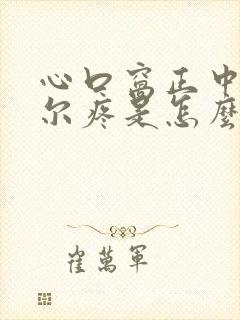 心口窩正中
尔疼是怎麼
崔萬軍